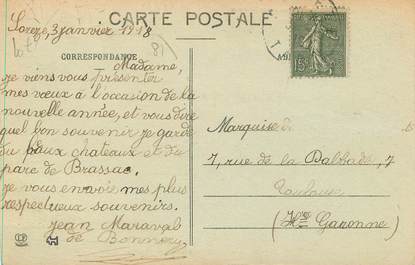 CARTE POSTALE
Sorèze, 3 janvier 1918
CORRESPONDANCE
Madame,
je viens vous présenter
mes vœux à l'occasion de la
nouvelle année, et vous dire
quel bon souvenir je garde
du vieux chateaux et du
parc de Brassac.
je vous envoie mes plus
respectueux souvenirs.
Jean Maraval
de Bonnery
15
Marquise de
7, rue de la Dalbade, 7
Toulouse
(Hte Garonne)